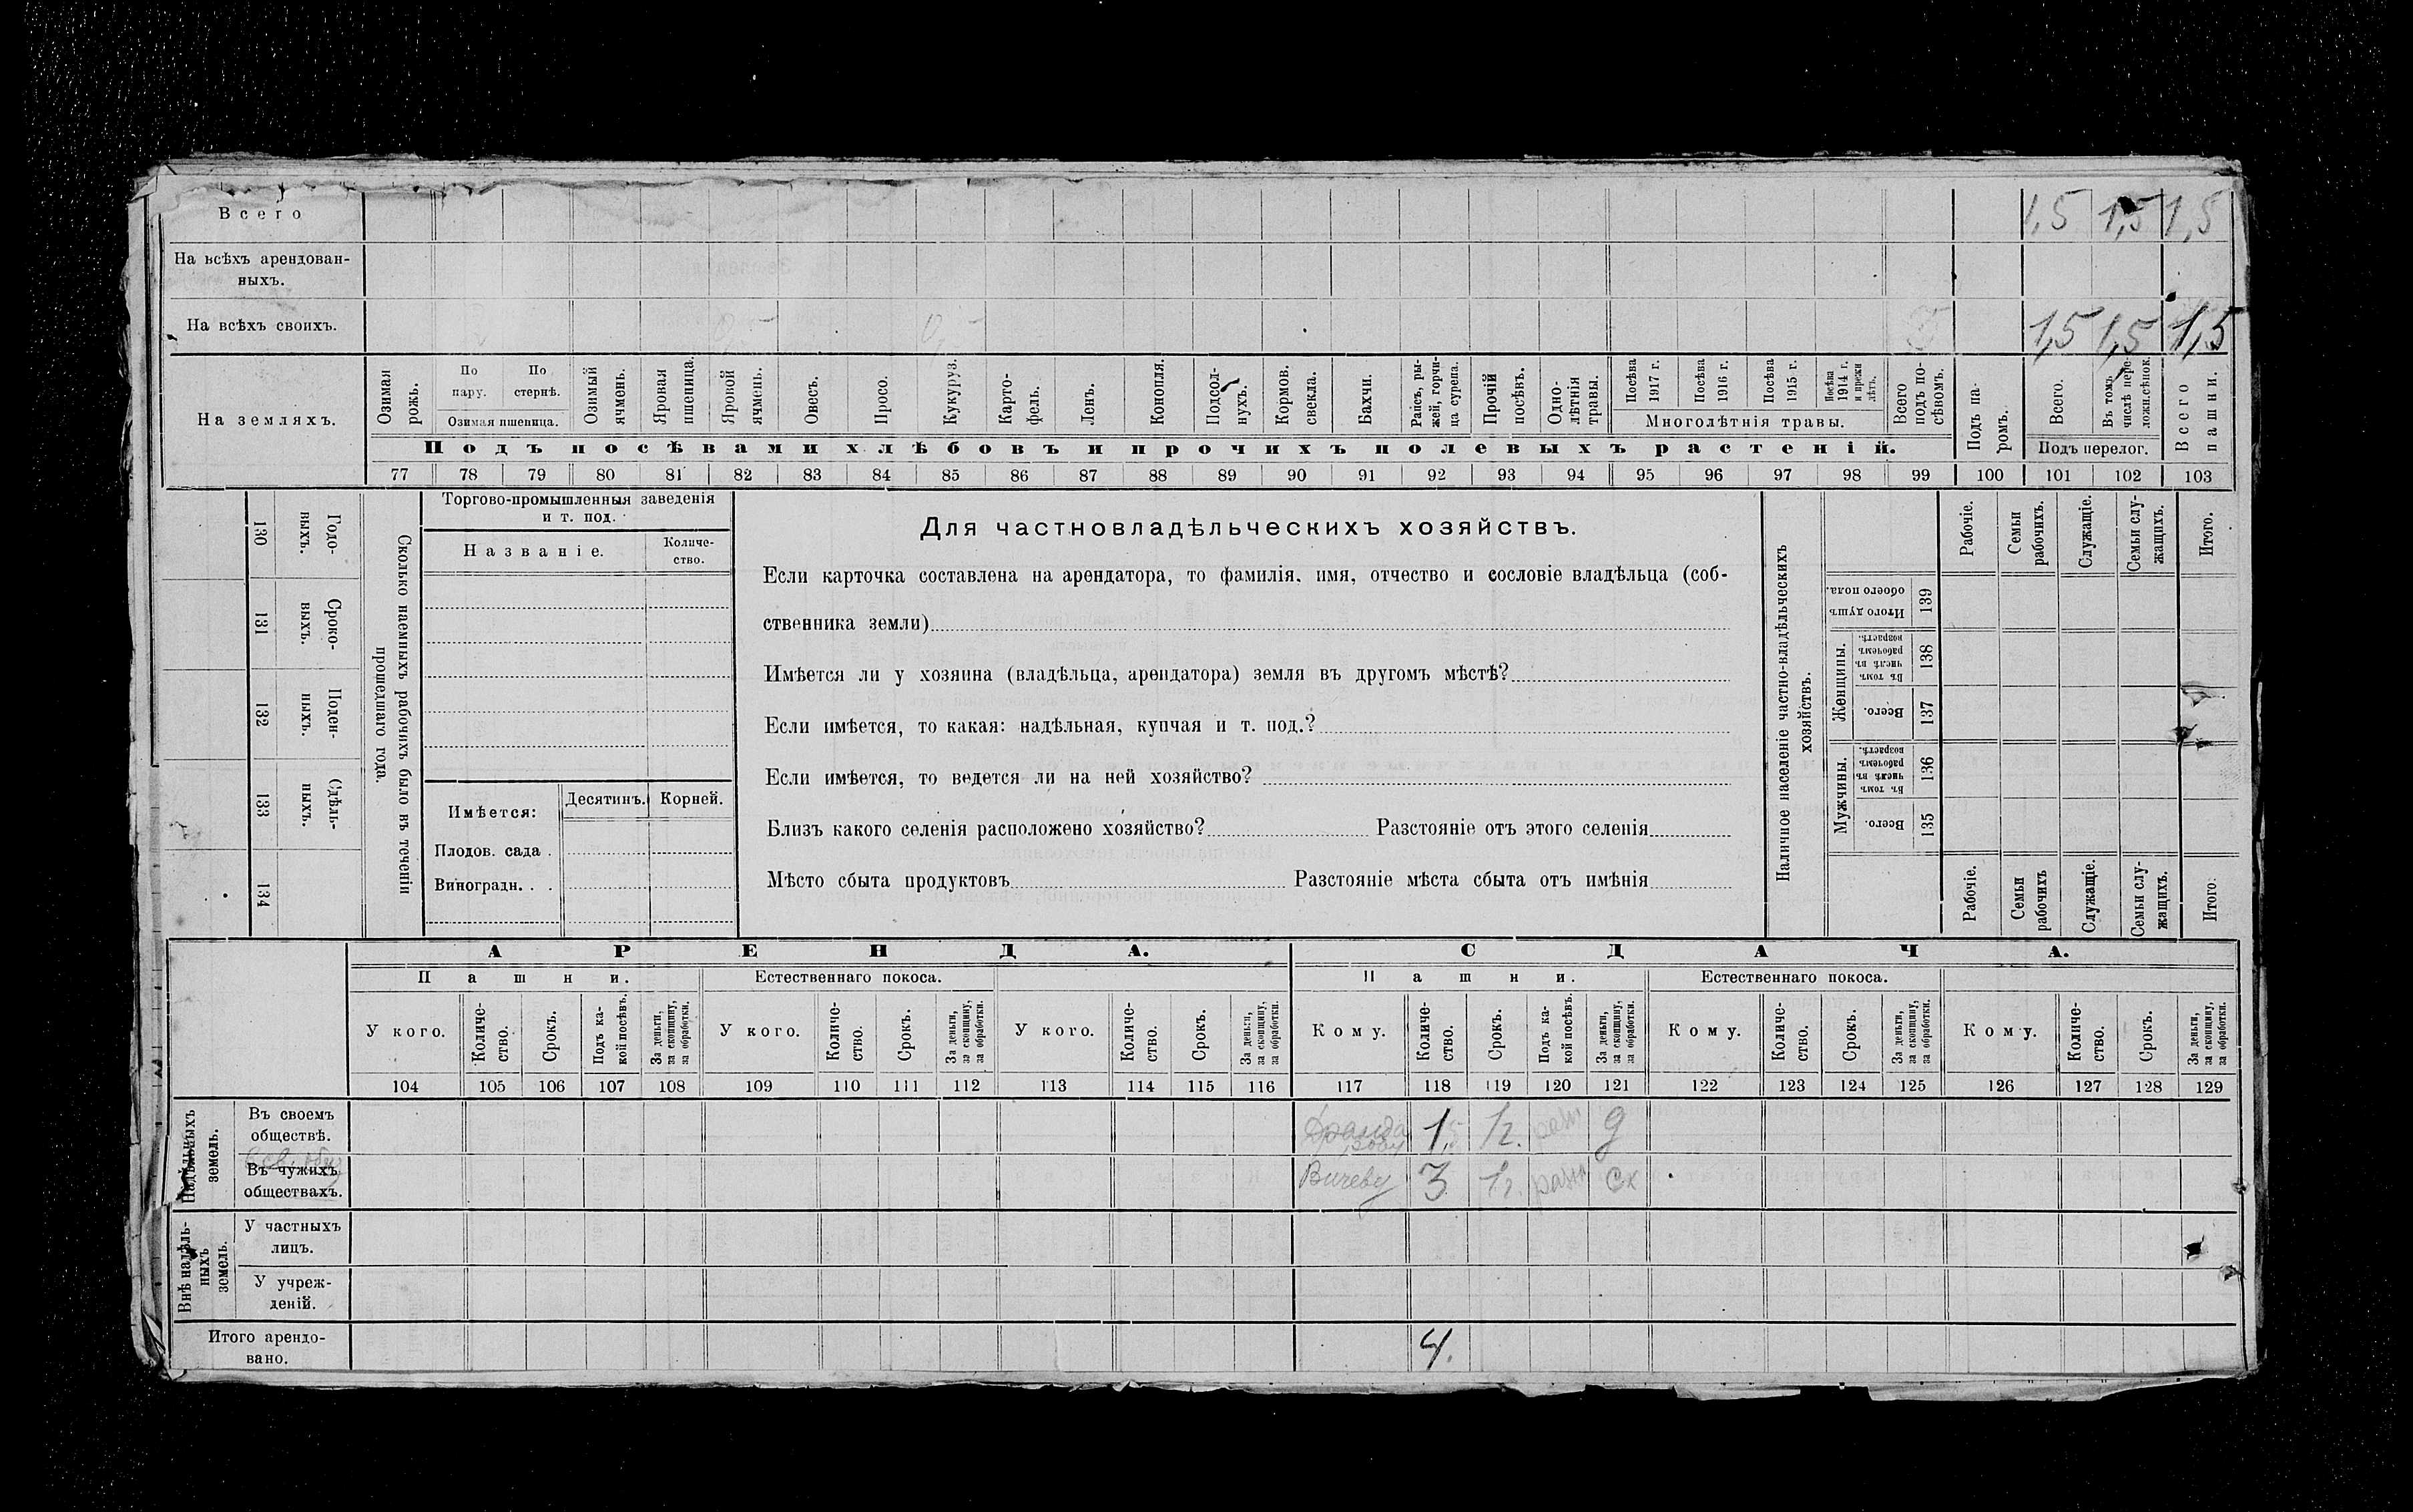 Всего 1,5 1,5 1,5
На всѣхъ арендован-
ныхъ.
На всѣхъ своихъ. 1,5 1,5 1,5
На земляхъ.
Озимая рожь.
По пару.
По стернѣ.
Озимая пшеница.
Озимый ячмень.
Яровая пшеница.
Яровой ячмень.
Овесъ.
Просо.
Кукуруз.
Карто-
фель.
Ленъ.
Конопля.
Подсол-
нухъ.
Кормов.
свекла.
Бахчи.
Рапсъ, ры-
жей, горчи-
ца сурепа.
Прочій
посѣвъ.
Одно-
лѣтнія
травы.
Посѣва
1917 г.
Посѣва
1916 г.
Посѣва
1915 г.
Посѣва
1914 г.
и прежн
лѣтъ.
Многолѣтнія травы.
Всего
подъ по-
сѣвомъ.
Подъ па-
ромъ.
Всего.
Въ томъ
числѣ пере-
ложн.сѣнок.
Подъ перелог.
Всего
пашни.
Подъ посѣвами хлѣбовъ и прочихъ полевыхъ растеній.
77 78 79 80 81 82 83 84 85 86 87 88 89 90 91 92 93 94 95 96 97 98 99 100 101 102 103
130 Годо-
выхъ.
131 Сроко-
выхъ.
132 Поден-
ныхъ.
133 Сдѣль-
ныхъ.
134
Сколько наемныхъ рабочихъ было въ теченіи
прошедшаго года.
Торгово-промышленныя заведенія
и т. под.
Названіе.
Количе-
ство.
Имѣется:
Десятинъ. Корней.
Плодов. сада .
Виноградн. . .
Для частновладѣльческихъ хозяйствъ.
Если карточка составлена на арендатора, то фамилія, имя, отчество и сословіе владѣльца (соб-
ственника земли)
Имѣется ли у хозяина (владѣльца, арендатора) земля въ другомъ мѣстѣ?
Если имѣется, то какая: надѣльная, купчая и т. под.?
Если имѣется, то ведется ли на ней хозяйство?
Близъ какого селенія расположено хозяйство? Разстояніе отъ этого селенія
Мѣсто сбыта продуктовъ Разстояніе мѣста сбыта отъ имѣнія
Наличное населеніе частно-владѣльческихъ
хозяйствъ.
Рабочіе.
Семьи
рабочихъ.
Служащіе.
Семьи слу-
жащихъ.
Итого.
Итого душъ
обоего пола.
139
Женщины.
Въ томъ
числѣ въ
рабочемъ
возрастѣ.
138
Всего.
137
Мужчины.
Въ томъ
числѣ въ
рабочемъ
возрастѣ.
136
Всего.
135
Рабочіе.
Семьи
рабочихъ
Служащіе.
Семьи слу-
жащихъ.
Итого.
АРЕНДА. СДАЧА.
Пашни. Естественнаго покоса. Пашни. Естественнаго покоса.
У кого.
Количе-
ство.
Срокъ.
Подъ ка-
кой посѣвъ.
За деньги,
за скопщину,
за обработки.
У кого.
Количе-
ство.
Срокъ.
За деньги,
за скопщину,
за обработки.
У кого.
Количе-
ство.
Срокъ.
За деньги,
за скопщину,
за обработки.
Кому.
Количе-
ство.
Срокъ.
Подъ ка-
кой посѣвъ.
За деньги,
за скопщину,
за обработки.
Кому.
Количе-
ство.
Срокъ.
За деньги,
за скопщину,
за обработки.
Кому.
Количе-
ство.
Срокъ.
За деньги,
за скопщину,
за обработки.
104 105 106 107 108 109 110 111 112 113 114 115 116 117 118 119 120 121 122 123 124 125 126 127 128 129
Надѣльныхъ
земель.
Въ своемъ
обществѣ.
1,5 1г. разн д
Въ чужихъ
обществахъ.
Вичеву 3 1г. разн ск
Внѣ надѣль-
ныхъ
земель.
У частныхъ
лицъ.
У учреж-
деній.
Итого арендо-
вано.
4.